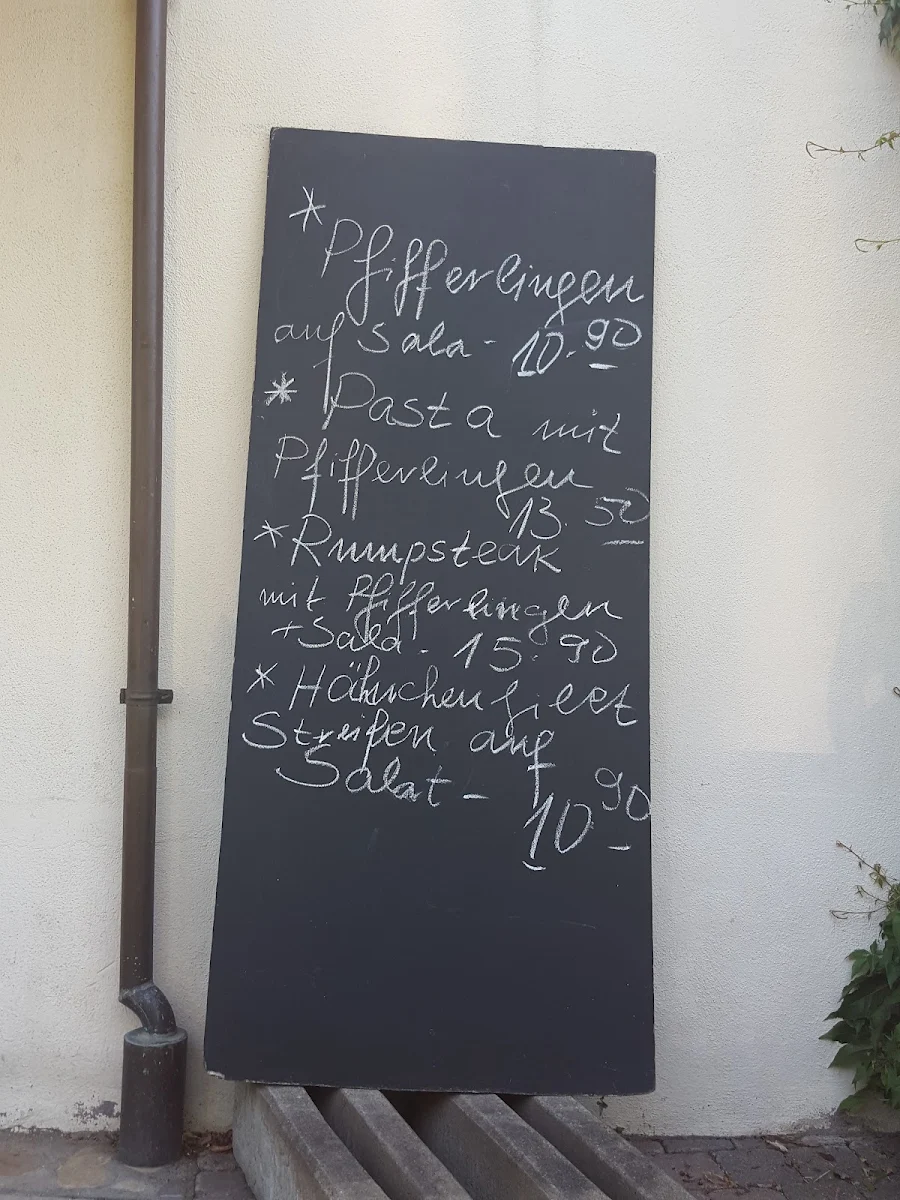 * Pfifferlingen
auf Sala - 10.90
* Pasta mit
Pfifferlingen
13.50
* Rumpsteak
mit Pfifferlingen
+ Sala - 15.90
* Hähnchenfilet
Streifen auf
Salat -
10.90